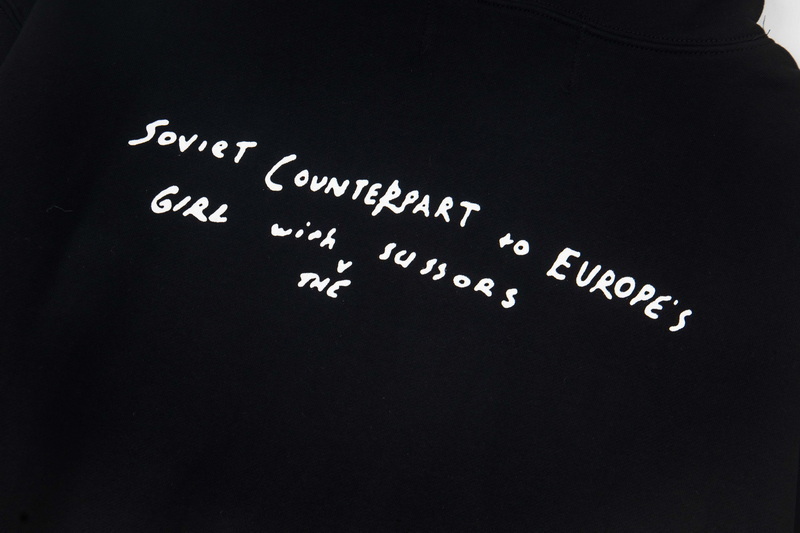 SOVIET COUNTERPART to EUROPE'S
GIRL with SCISSORS
THE